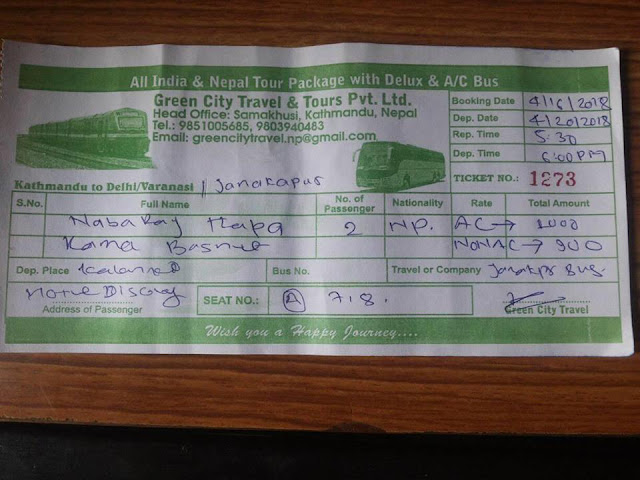 All India & Nepal Tour Package with Delux & A/C Bus
Green City Travel & Tours Pvt. Ltd.
Head Office: Samakhusi, Kathmandu, Nepal
Tel.: 9851005685, 9803940483
Email: greencitytravel.np@gmail.com
Booking Date 4/16/2018
Dep. Date 4/20/2018
Rep. Time 5:30
Dep. Time 6:00PM
Kathmandu to Delhi/Varanasi / Janakapur
TICKET NO.: 1273
S.No. Full Name No. of Passenger Nationality Rate Total Amount
Nabaraj 2 NP. AC → 1000
Basnet NONAC → 900
Dep. Place Bus No. Travel or Company Bus.
SEAT NO.: A 7.8.
Address of Passenger Green City Travel
Wish you a Happy Journey....